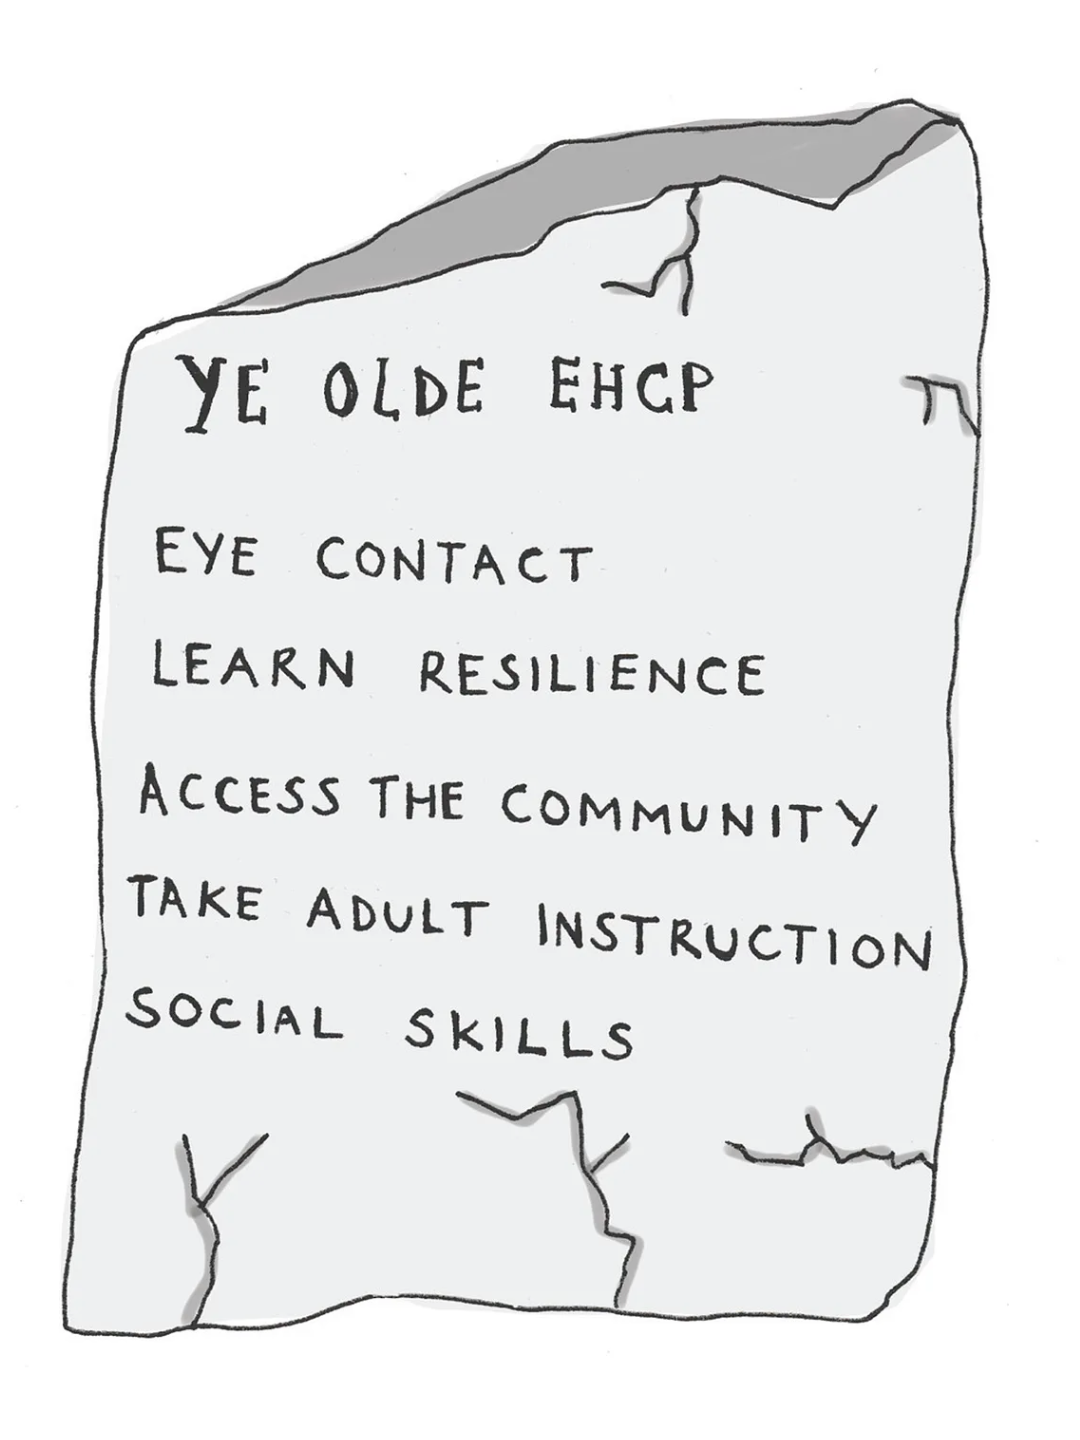 YE OLDE EHCP
EYE CONTACT
LEARN RESILIENCE
ACCESS THE COMMUNITY
TAKE ADULT INSTRUCTION
SOCIAL SKILLS